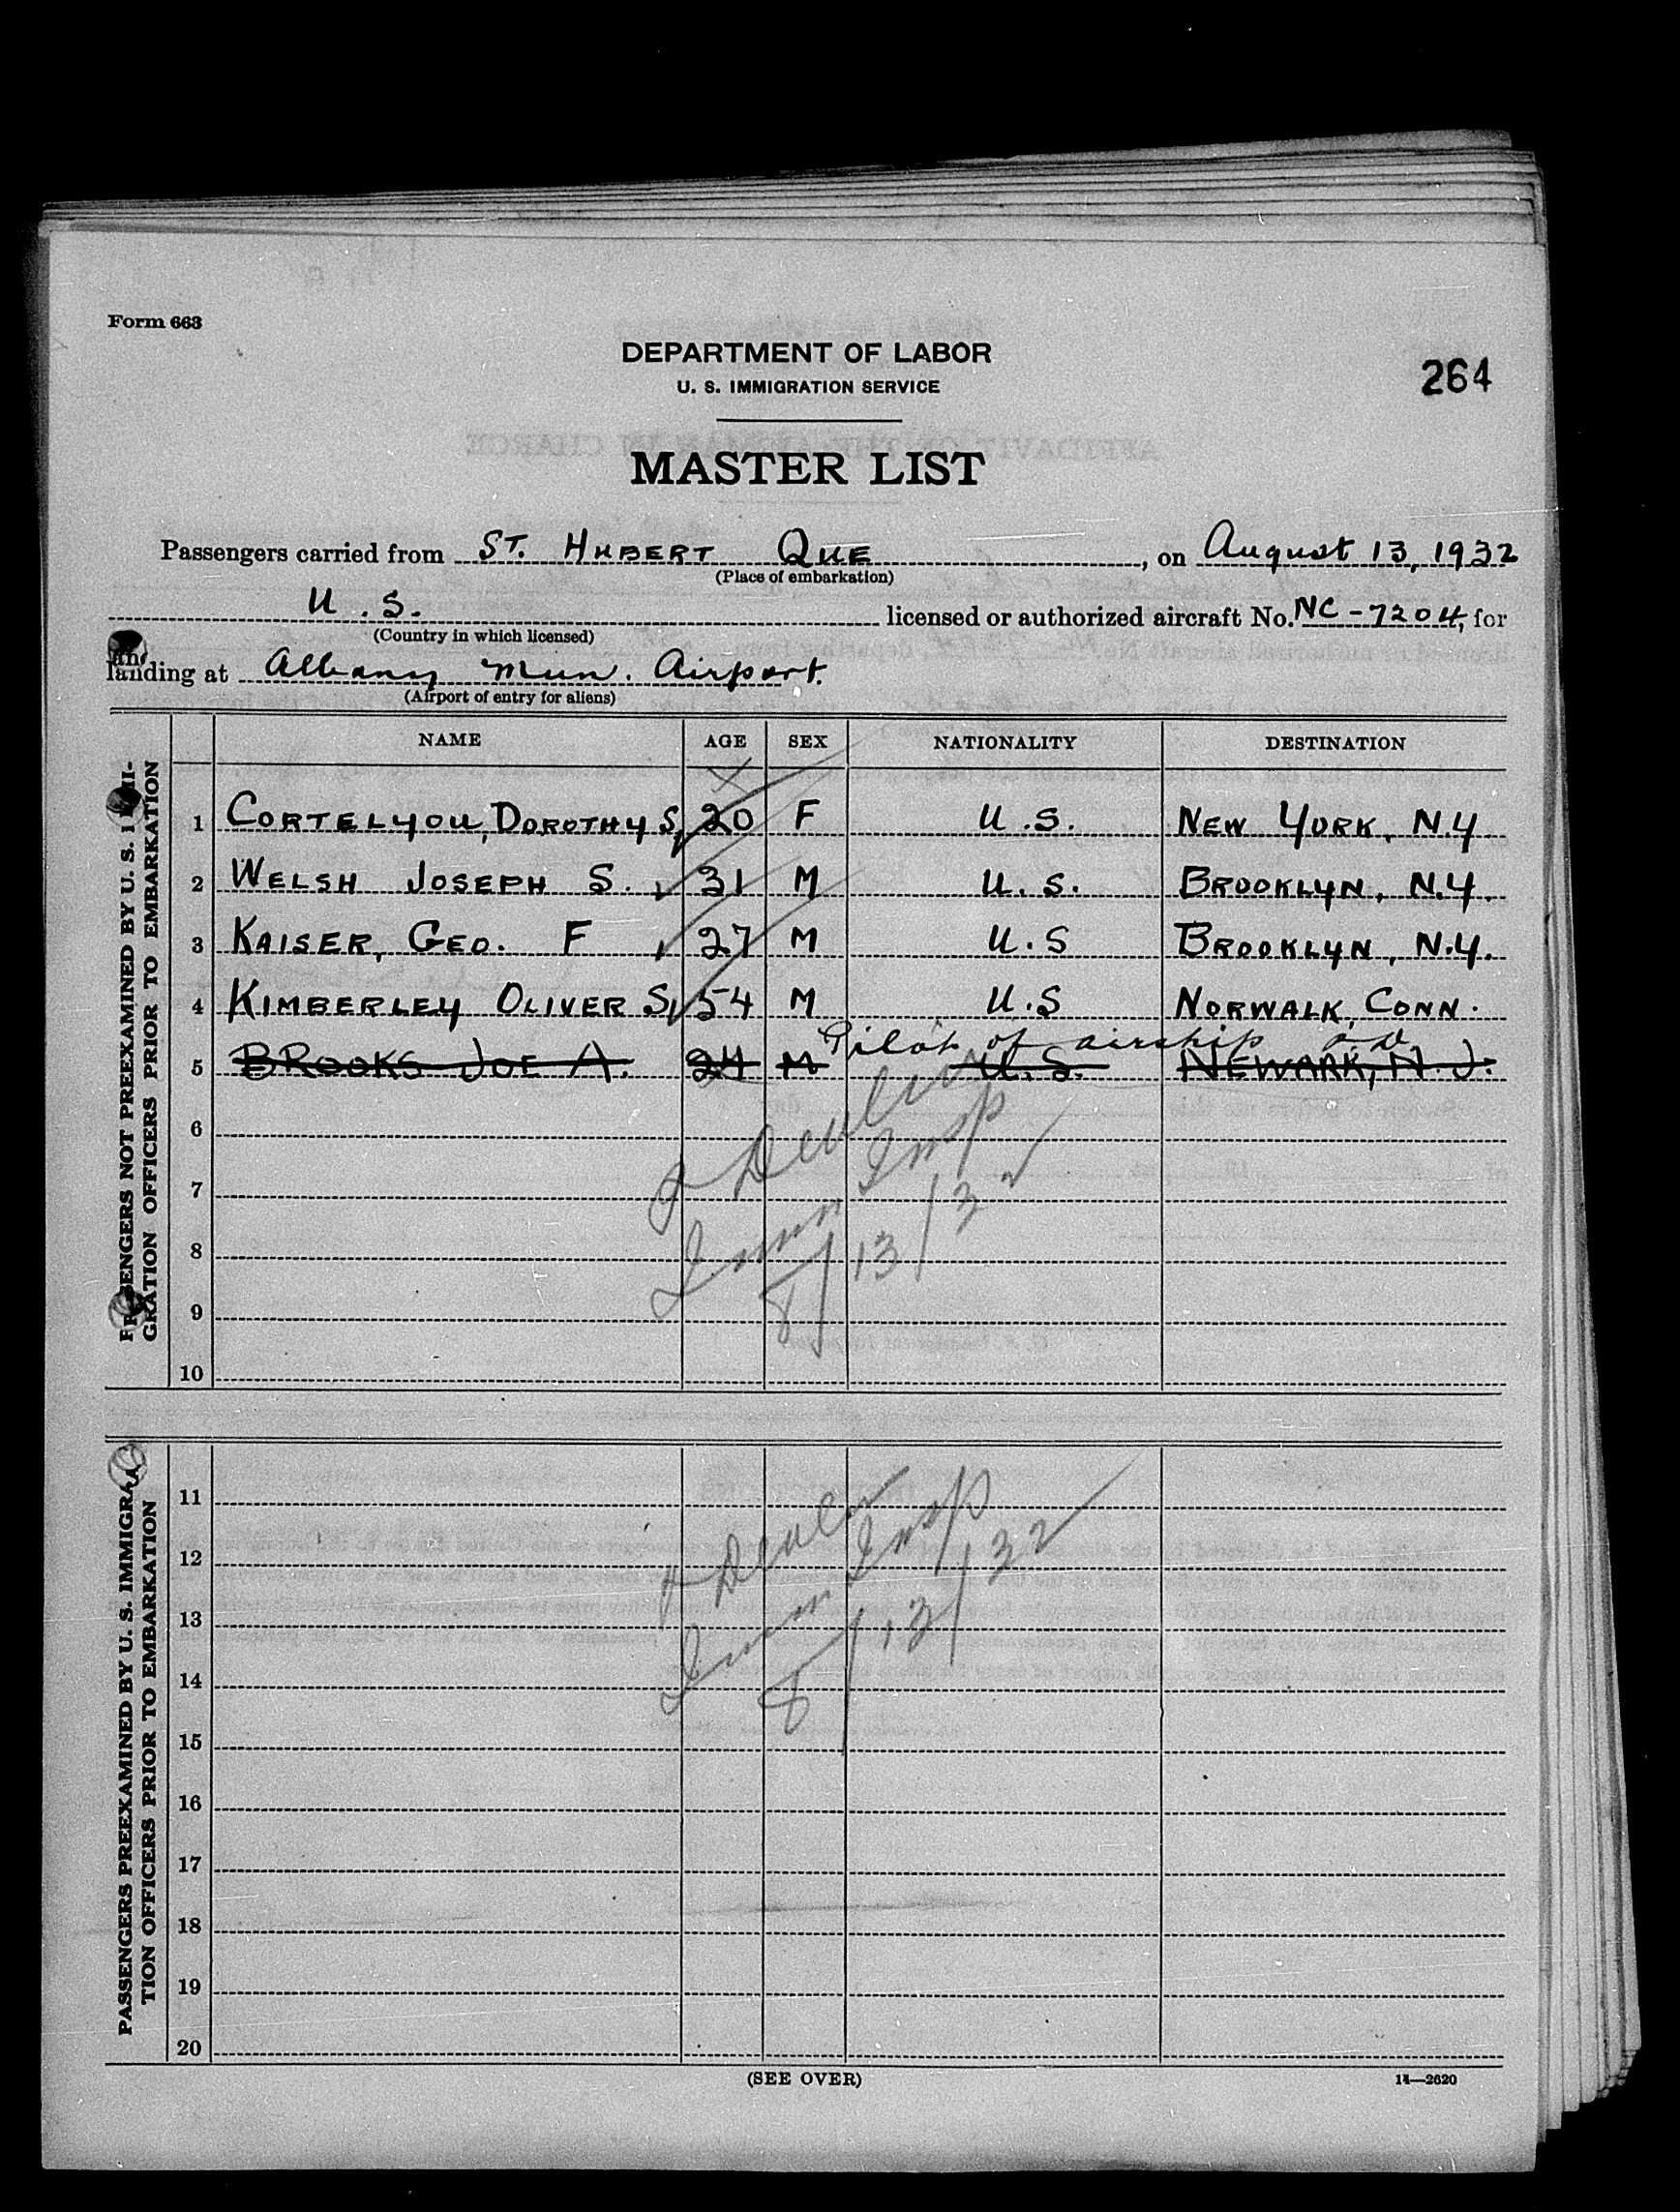 Form 663
DEPARTMENT OF LABOR
U. S. IMMIGRATION SERVICE
264
MASTER LIST
Passengers carried from ST. HUBERT QUE, on August 13, 1932
(Place of embarkation)
U.S. licensed or authorized aircraft No. NC-7204, for
(Country in which licensed)
landing at Albany Mun. Airport.
(Airport of entry for aliens)
NAME AGE SEX NATIONALITY DESTINATION
PASSENGERS NOT PREEXAMINED BY U. S. IMMI-
GRATION OFFICERS PRIOR TO EMBARKATION
1 CORTELYOU, DOROTHY S, 20 F U.S. NEW YORK, N.Y.
2 WELSH JOSEPH S. 31 M U.S. BROOKLYN, N.Y.
3 KAISER, GEO. F 27 M U.S BROOKLYN, N.Y.
4 KIMBERLEY OLIVER S, 54 M U.S NORWALK, CONN.
Pilot of airship
5 BROOKS JOE A. 24 M U.S. NEWARK, N.J.
6
7
8
9
10
Devlin
Imm Insp
8/13/32
PASSENGERS PREEXAMINED BY U. S. IMMIGRA-
TION OFFICERS PRIOR TO EMBARKATION
11
12
13
14
15
16
17
18
19
20
Devlin
Imm Insp
8/13/32
(SEE OVER)
14—2620